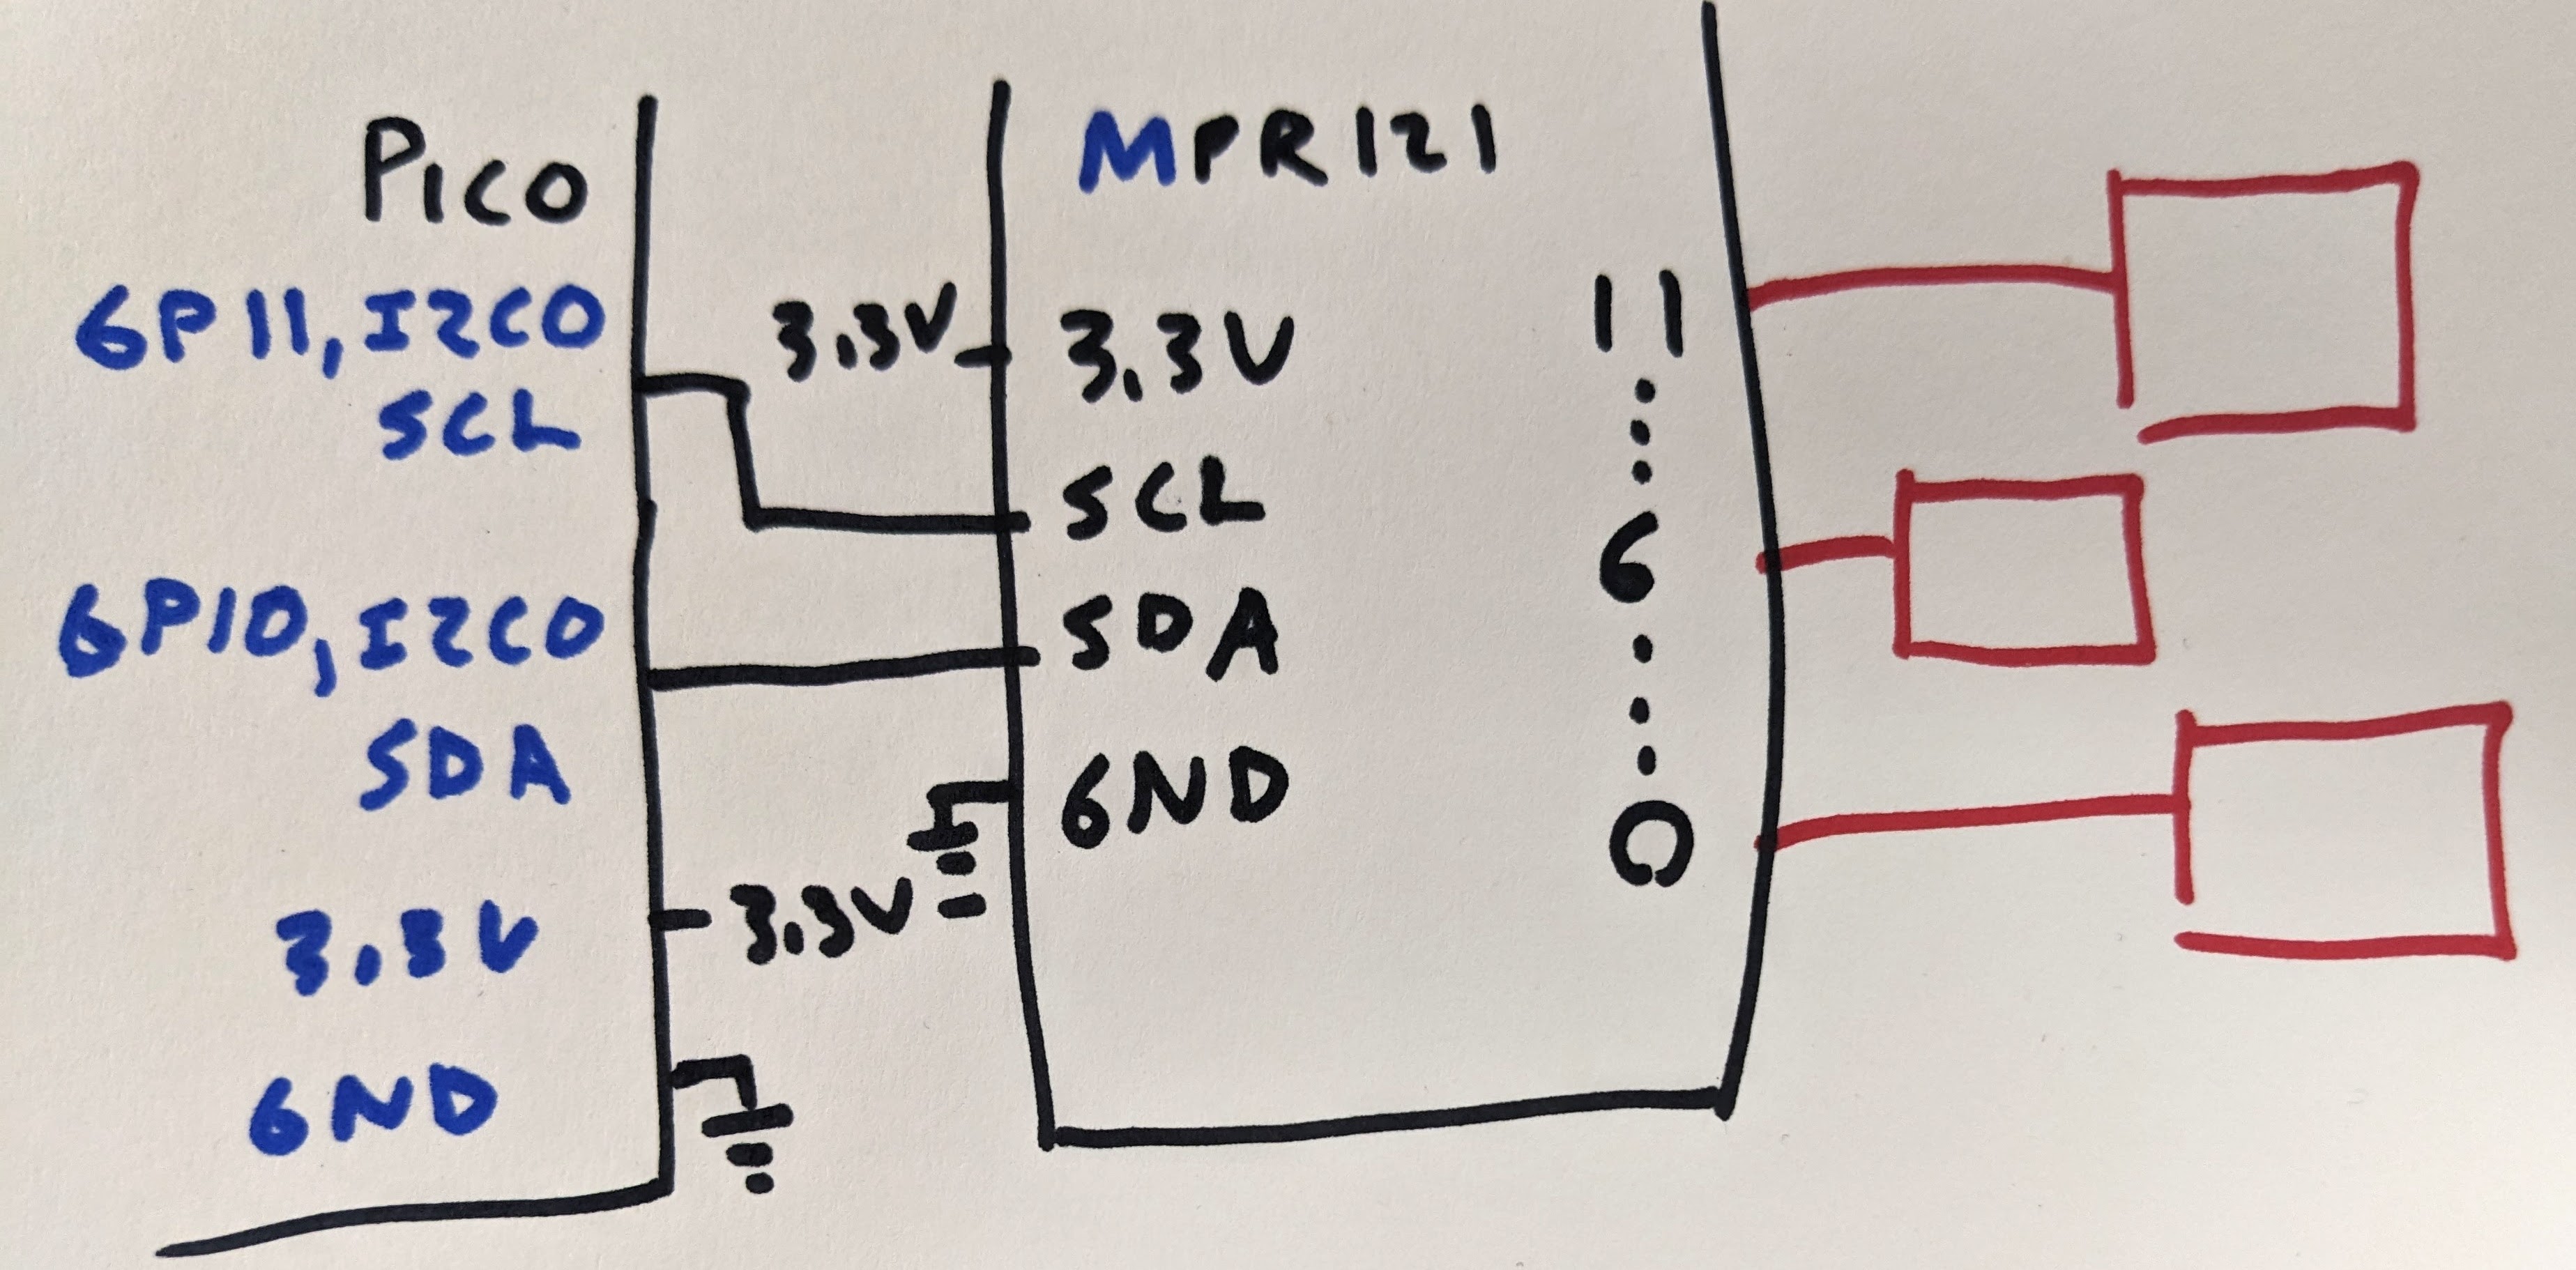 PICO
GP11, I2C0
SCL
GP10, I2C0
SDA
3.3V
GND
3.3V
3.3V
MPR121
3.3V
SCL
SDA
GND
11
6
0